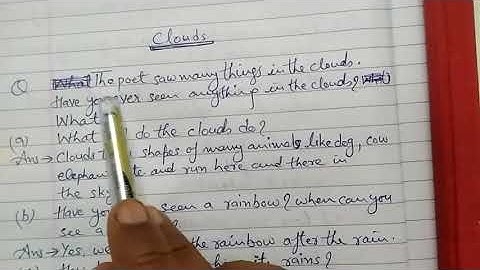 Clouds
Q The poet saw many things in the clouds.
Have you ever seen anything in the clouds?
What
(a) What do the clouds do?
Ans → Clouds shapes of many animals like dog, cow
elephant and run here and there in
the sky
(b) Have you seen a rainbow? when can you
see a
Ans → Yes, we the rainbow after the rain.
it rains?